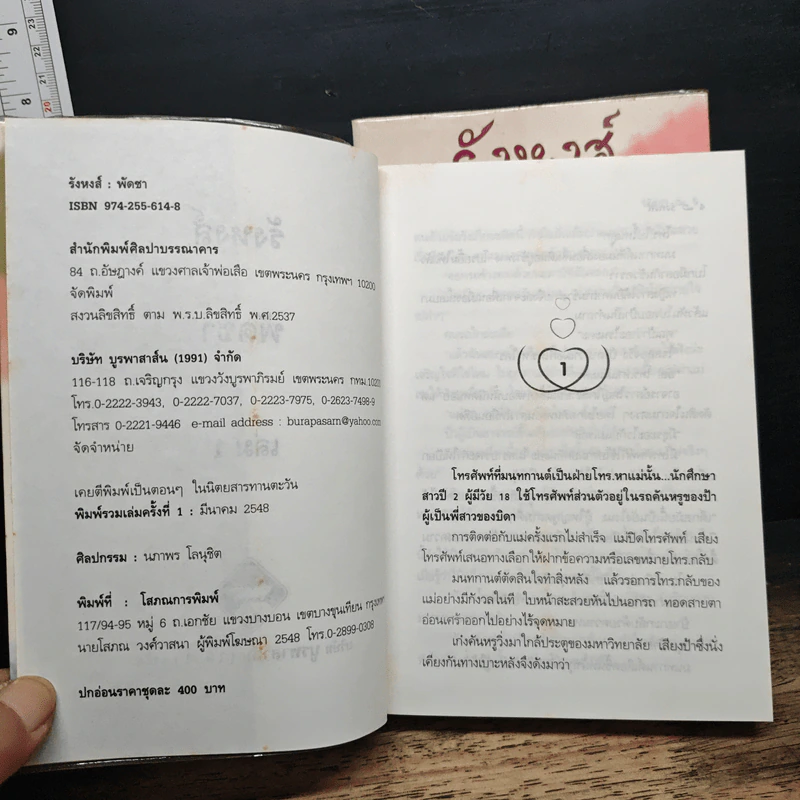 รังหงส์
รังหงส์ : พัดชา
ISBN 974-255-614-8
สำนักพิมพ์ศิลปาบรรณาคาร
84 ถ.อัษฎางค์ แขวงศาลเจ้าพ่อเสือ เขตพระนคร กรุงเทพฯ 10200
จัดพิมพ์
สงวนลิขสิทธิ์ ตาม พ.ร.บ.ลิขสิทธิ์ พ.ศ.2537
บริษัท บูรพาสาส์น (1991) จำกัด
116-118 ถ.เจริญกรุง แขวงวังบูรพาภิรมย์ เขตพระนคร กทม.10200
โทร.0-2222-3943, 0-2222-7037, 0-2223-7975, 0-2623-7498-9
โทรสาร 0-2221-9446 e-mail address : burapasarn@yahoo.com
จัดจำหน่าย
เคยตีพิมพ์เป็นตอนๆ ในนิตยสารทานตะวัน
พิมพ์รวมเล่มครั้งที่ 1 : มีนาคม 2548
ศิลปกรรม : นภาพร โลนุชิต
พิมพ์ที่ : โสภณการพิมพ์
117/94-95 หมู่ 6 ถ.เอกชัย แขวงบางบอน เขตบางขุนเทียน กรุงเทพฯ
นายโสภณ วงศ์วาสนา ผู้พิมพ์โฆษณา 2548 โทร.0-2899-0308
ปกอ่อนราคาชุดละ 400 บาท
1
โทรศัพท์ที่มนทกานต์เป็นฝ่ายโทร.หาแม่นั้น...นักศึกษา
สาวปี 2 ผู้มีวัย 18 ใช้โทรศัพท์ส่วนตัวอยู่ในรถคันหรูของป้า
ผู้เป็นพี่สาวของบิดา
การติดต่อกับแม่ครั้งแรกไม่สำเร็จ แม่ปิดโทรศัพท์ เสียง
โทรศัพท์เสนอทางเลือกให้ฝากข้อความหรือเลขหมายโทร.กลับ
มนทกานต์ตัดสินใจทำสิ่งหลัง แล้วรอการโทร.กลับของ
แม่อย่างมีกังวลในที ใบหน้าสะสวยหันไปนอกรถ ทอดสายตา
อ่อนเศร้าออกไปอย่างไร้จุดหมาย
เก๋งคันหรูวิ่งมาใกล้ประตูของมหาวิทยาลัย เสียงป้าซึ่งนั่ง
เคียงกันทางเบาะหลังจึงดังมาว่า